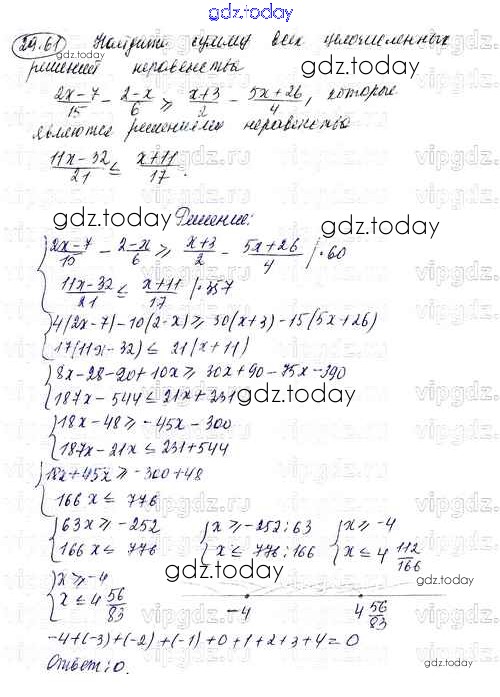 gdz.today
29.61 Найдите сумму всех целочисленных
решений неравенства
(2x-7)/15 - (2-x)/6 ≥ (x+3)/2 - (5x+26)/4, которые
являются решениями неравенства
(11x-32)/21 ≤ (x+11)/17.
gdz.today
Решение:
(2x-7)/15 - (2-x)/6 ≥ (x+3)/2 - (5x+26)/4 /·60
(11x-32)/21 ≤ (x+11)/17 /·357
4(2x-7)-10(2-x) ≥ 30(x+3)-15(5x+26)
17(11x-32) ≤ 21(x+11)
8x-28-20+10x ≥ 30x+90-75x-390
187x-544 ≤ 21x+231
18x-48 ≥ -45x-300
187x-21x ≤ 231+544
18x+45x ≥ -300+48
166x ≤ 776
63x ≥ -252 x ≥ -252:63 x ≥ -4
166x ≤ 776 x ≤ 776:166 x ≤ 4 112/166
x ≥ -4
x ≤ 4 56/83 -4 4 56/83
-4+(-3)+(-2)+(-1)+0+1+2+3+4=0
Ответ: 0.
gdz.today